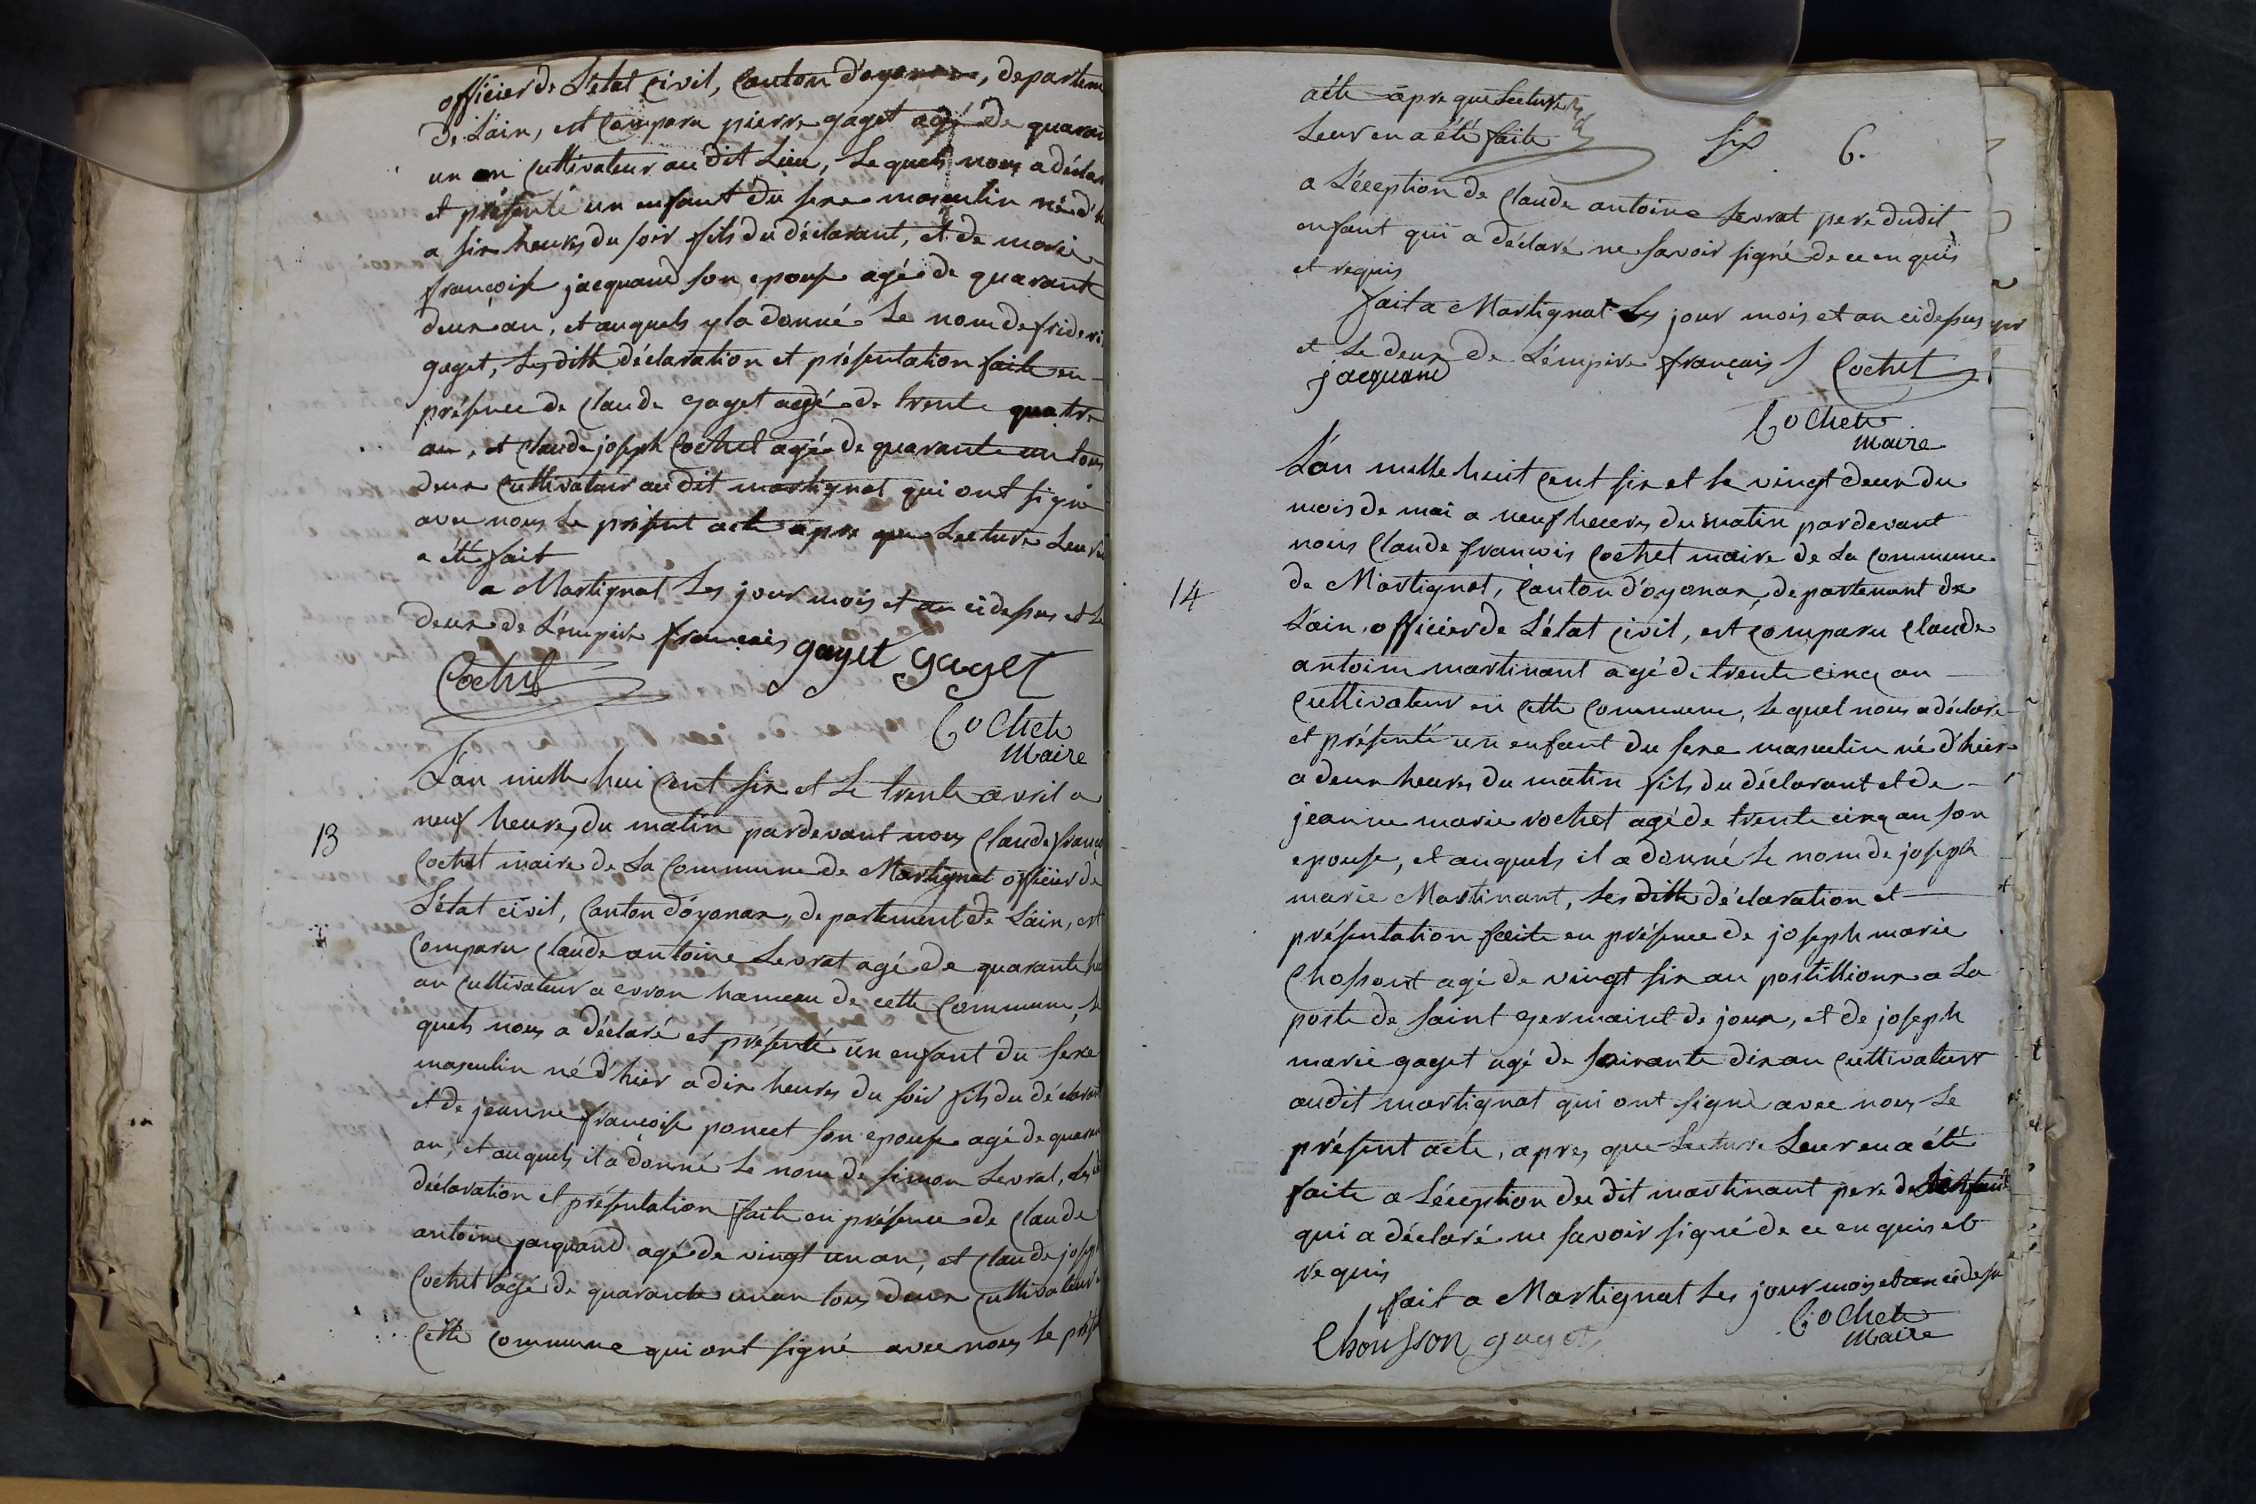 officier de L'état Civil, Canton d'oyonax, departem
De L'ain, est Comparu pierre gaget agé de quaran
un an Cultivateur au dit Lieu, Le quels nous a décla
et présenté un enfant du sexe masculin né d'h
a six heures du soir fils du déclarant, et de marie
françoise jacquand son epouse agé de quarante
deux an, et auquels y la donné Le nom de frideri
gaget, Les ditte déclaration et présentation faite en
présence de Claude gaget agé de trente quatre
an, et Claude joseph Cochet agé de quarante un tous
deux Cultivateur au dit martignat qui ont signé
avec nous Le présent acte apre que Lecture Leur
a été fait
a Martignat Les jour mois et an cidessus et Le
deux de L'empire français gaget gaget
Cochet
Cochet
Maire
L'an mille hui Cent six et Le trente avril a
neuf heures du matin pardevant nous Claude franço
13
Cochet maire de La Commune de Martignat officier de
L'état civil, Canton d'oyonax, departement de L'ain, est
Comparu Claude antoine Levrat agé de quarante hu
an Cultivateur a evron hameau de cette Commune, Le
quels nous a déclaré et présenté un enfant du sexe
masculin né d'hier a dix heures du soir fils du déclarant
et de jeanne françoise poncet son epouse agé de quaran
an, et auquels il a donné Le nom de simon Levrat, Les
déclaration et présentation faite en présence de Claude
antoine jacquand agé de vingt un an, et Claude joseph
Cochet agé de quarante un an tous deux Cultivateur
Cette Commune qui ont signé avec nous Le prést
acte apre que Lecture
Leur en a été faite
six 6.
a L'éception de Claude antoine Levrat pere du dit
enfant qui a déclaré ne savoir signé de ce en quis
et requis
fait a Martignat Les jour mois et an cidessus
et Le deux de L'empire français Cochet
jacquand
Cochet
Maire
L'an mille huit Cent six et Le vingt deux du
mois de mai a neuf heures du matin pardevant
nous Claude francois Cochet maire de La Commune
14
de Martignat, Canton d'oyonax, departement de
L'ain officier de L'état Civil, est Comparu Claude
antoine martinant agé de trente cinq an
Cultivateur en Cette Commune, Le quel nous a déclaré
et présenté un enfant du sexe masculin né d'hier
a deux heures du matin fils du déclarant et de
jeanne marie rochet agé de trente cinq an son
epouse, et auquels il a donné Le nom de joseph
marie Martinant, Les ditte déclaration et
présentation faite en présence de joseph marie
Chossont agé de vingt six an postillionr a La
poste de saint germaint de joux, et de joseph
marie gaget agé de soixante dix an Cultivateur
audit martignat qui ont signé avec nous Le
présent acte, apres que Lecture Leur en a été
faite a L'éception du dit martinant pere de L'enfant
qui a déclaré ne savoir signé de ce en quis et
requis
fait a Martignat Les jour mois et an cidessu
Chousson gaget
Cochet
Maire